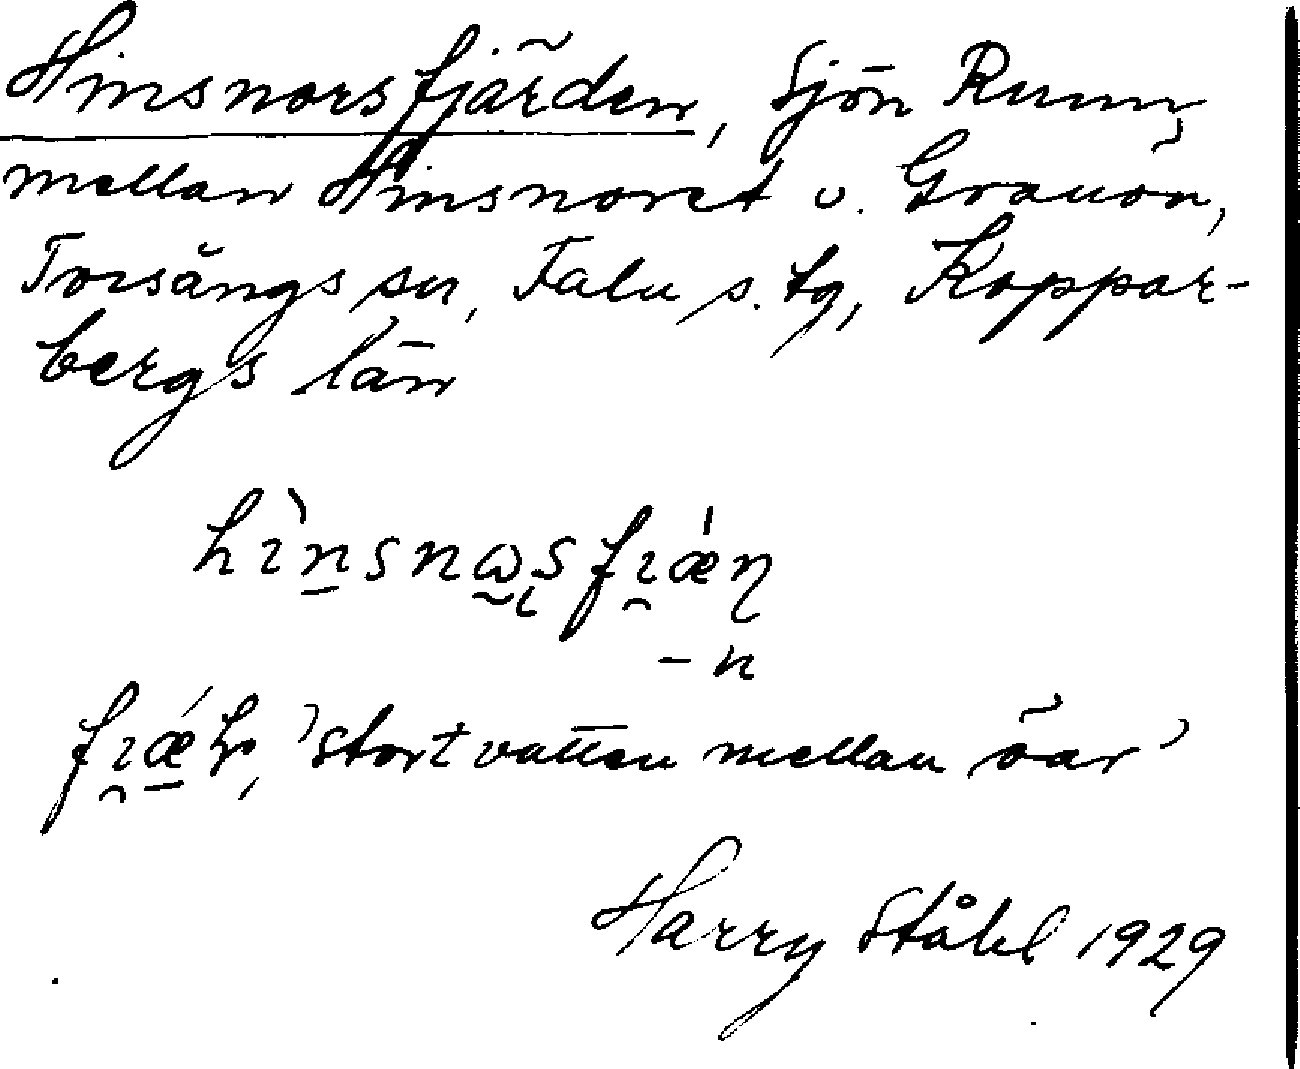 Hinsnorsfjärden, Sjön Runn,
mellan Hinsnoret o. Grauön,
Torsångs sn, Falu s. tg, Koppar-
bergs län
– n
'stort vatten mellan öar'
Harry Ståhl 1929